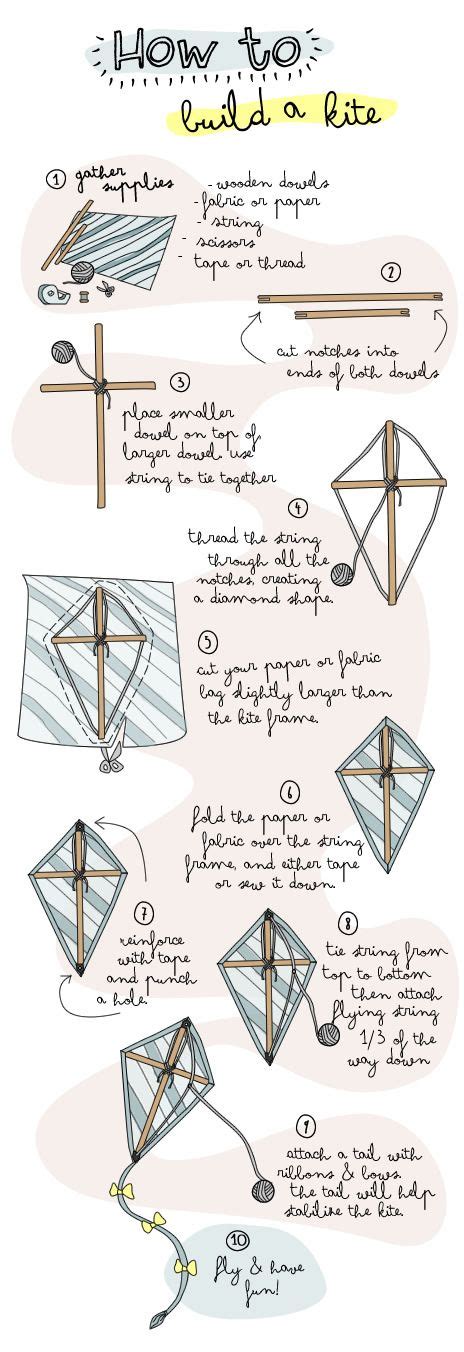 How to
build a kite
1 gather
supplies
- wooden dowels
- fabric or paper
- string
- scissors
- tape or thread
2
cut notches into
ends of both dowels
3
place smaller
dowel on top of
larger dowel. use
string to tie together
4
thread the string
through all the
notches, creating
a diamond shape.
5
cut your paper or fabric
bag slightly larger than
the kite frame.
6
fold the paper or
fabric over the string
frame, and either tape
or sew it down.
7
reinforce
with tape
and punch
a hole.
8
tie string from
top to bottom
then attach
flying string
1/3 of the
way down
9
attach a tail with
ribbons & bows.
the tail will help
stabilise the kite.
10
fly & have
fun!